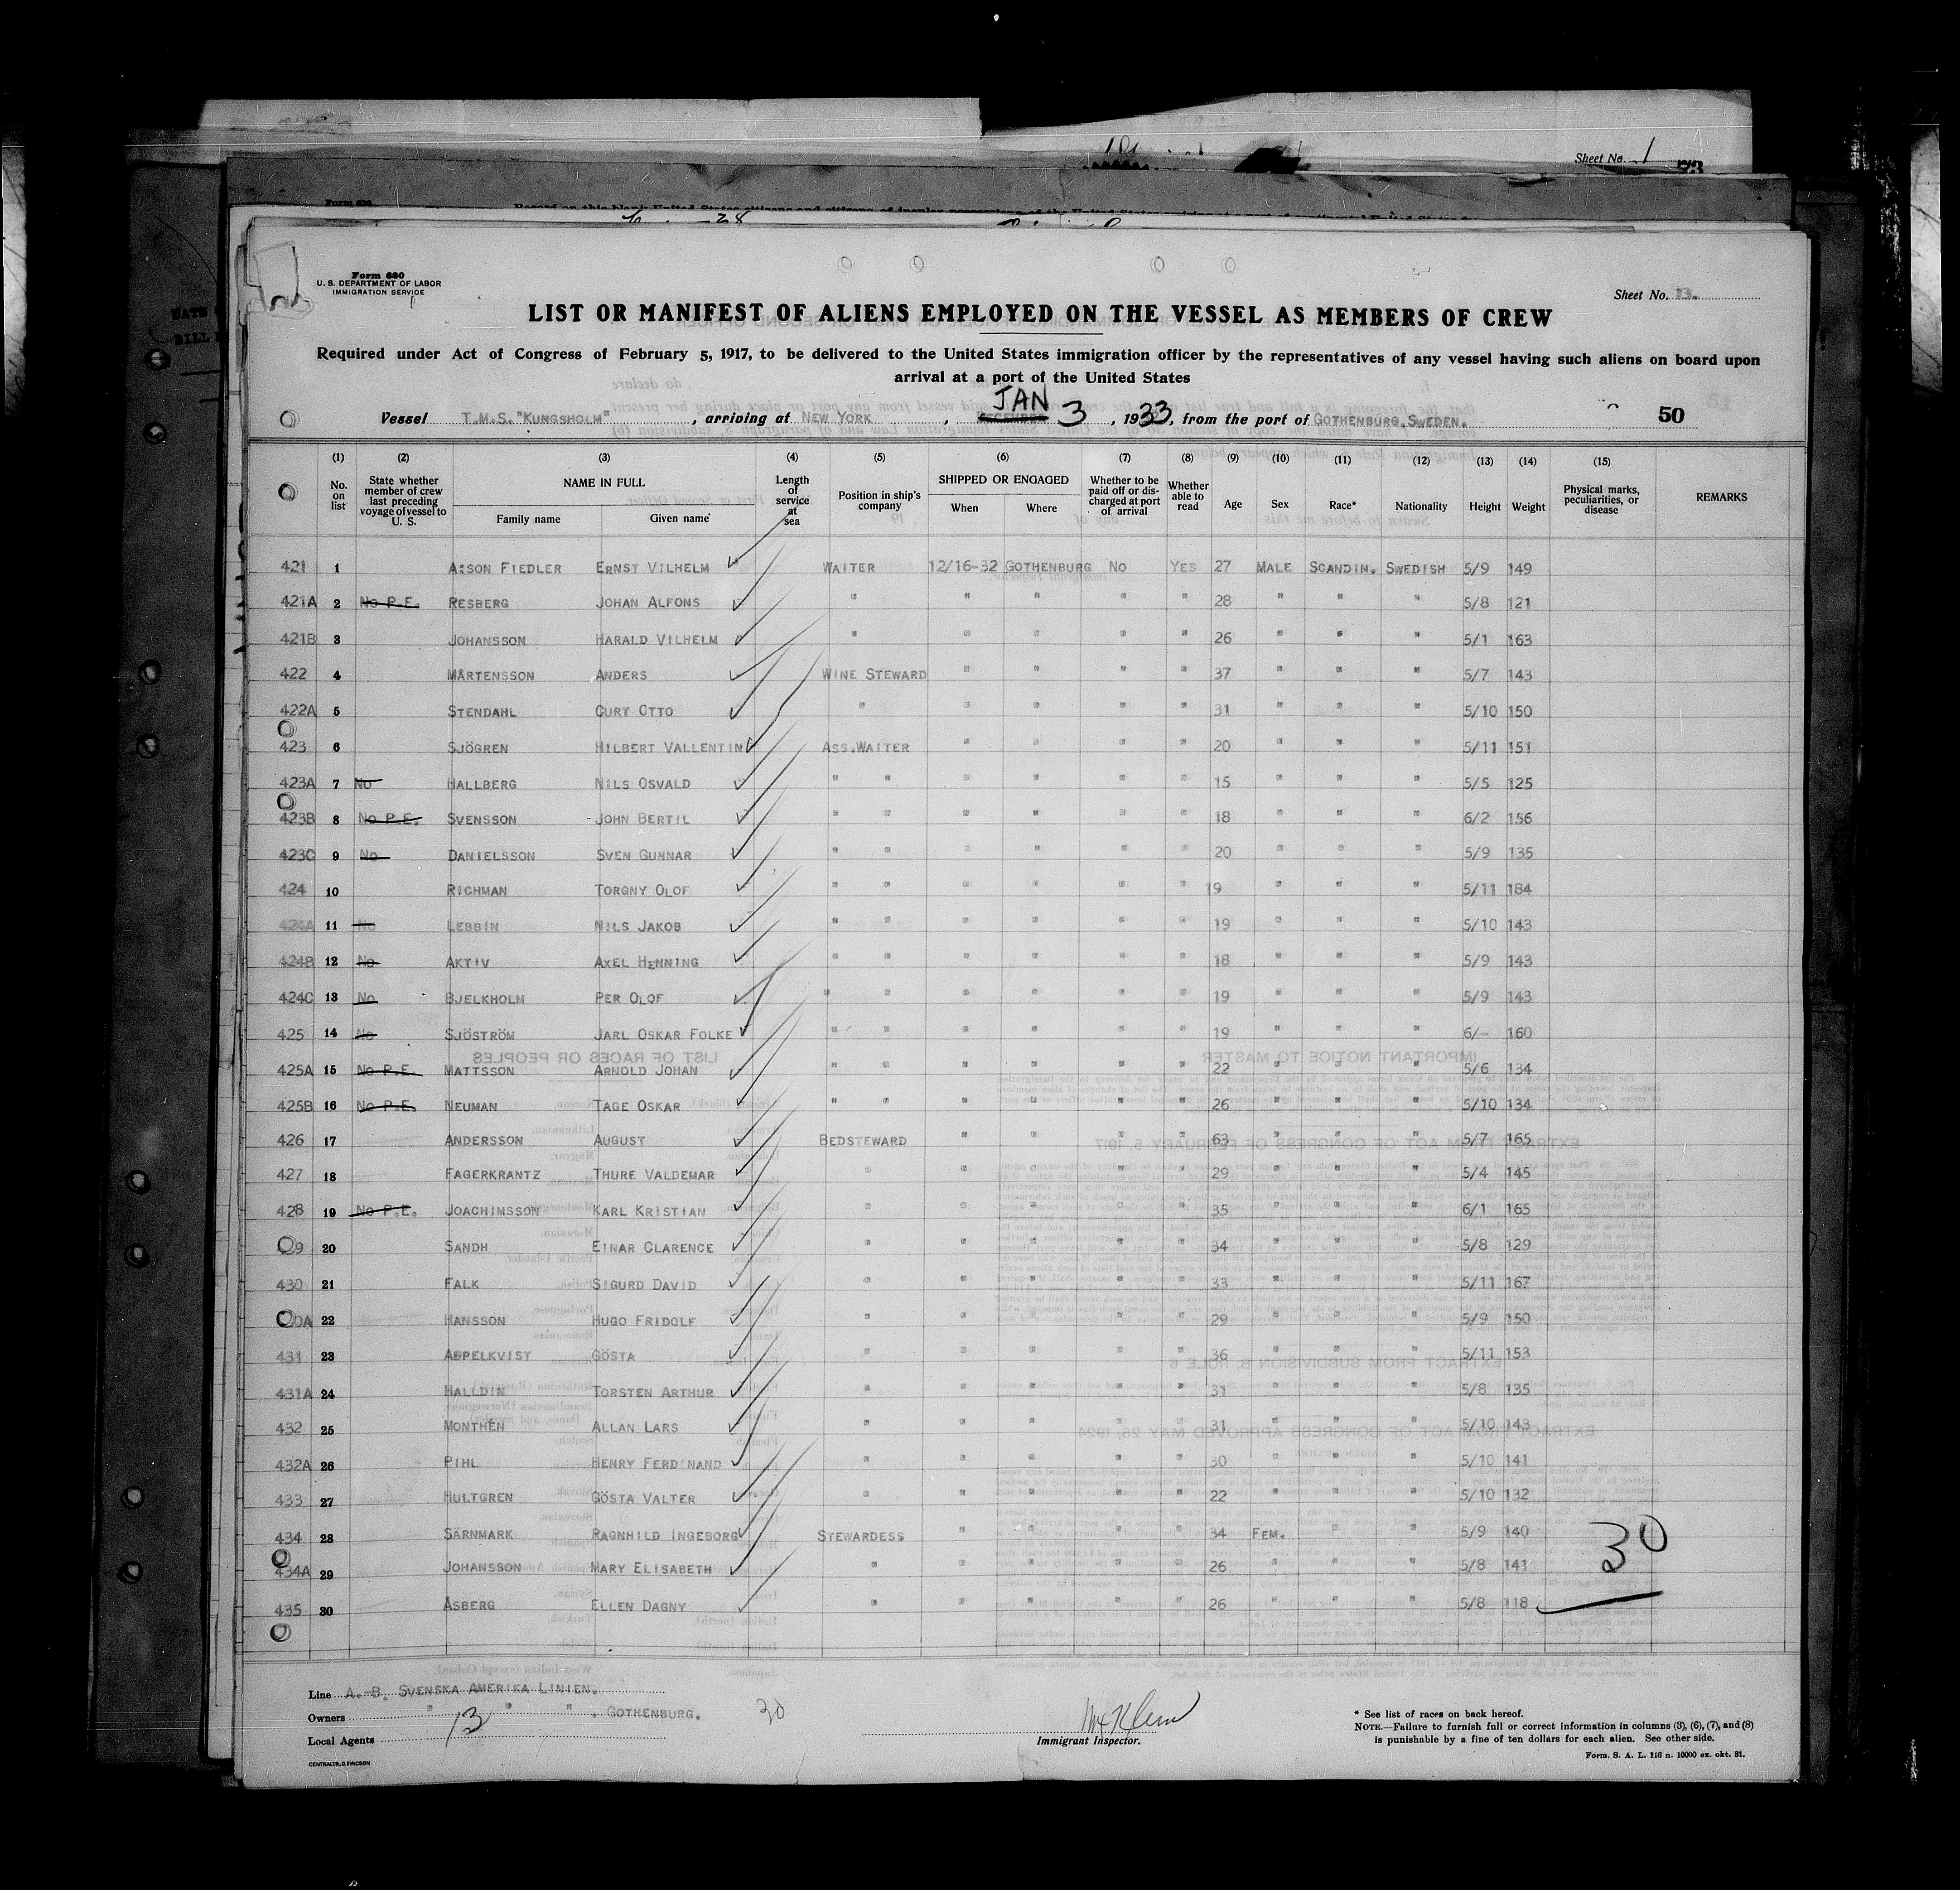 Sheet No. 1
Form 680
U. S. DEPARTMENT OF LABOR
IMMIGRATION SERVICE
Sheet No. 13.
LIST OR MANIFEST OF ALIENS EMPLOYED ON THE VESSEL AS MEMBERS OF CREW
Required under Act of Congress of February 5, 1917, to be delivered to the United States immigration officer by the representatives of any vessel having such aliens on board upon
arrival at a port of the United States
Vessel T.M.S."KUNGSHOLM", arriving at NEW YORK, JAN 3, 1933, from the port of GOTHENBURG.SWEDEN. 50
(1) (2) (3) (4) (5) (6) (7) (8) (9) (10) (11) (12) (13) (14) (15)
No. on list State whether member of crew last preceding voyage of vessel to U. S. NAME IN FULL Family name Given name Length of service at sea Position in ship's company SHIPPED OR ENGAGED When Where Whether to be paid off or discharged at port of arrival Whether able to read Age Sex Race* Nationality Height Weight Physical marks, peculiarities, or disease REMARKS
421 1 A:SON FIEDLER ERNST VILHELM WAITER 12/16-32 GOTHENBURG NO YES 27 MALE SCANDIN. SWEDISH 5/9 149
421A 2 No P.E. RESBERG JOHAN ALFONS " " " " " 28 " " " 5/8 121
421B 3 JOHANSSON HARALD VILHELM " " " " " 26 " " " 5/1 163
422 4 MÅRTENSSON ANDERS WINE STEWARD " " " " 37 " " " 5/7 143
422A 5 STENDAHL CURT OTTO " " " " " 31 " " " 5/10 150
423 6 SJÖGREN HILBERT VALLENTIN ASS.WAITER " " " " 20 " " " 5/11 151
423A 7 No HALLBERG NILS OSVALD " " " " " " 15 " " " 5/5 125
423B 8 No P.E. SVENSSON JOHN BERTIL " " " " " " 18 " " " 6/2 156
423C 9 No DANIELSSON SVEN GUNNAR " " " " " " 20 " " " 5/9 135
424 10 RICHMAN TORGNY OLOF " " " " " " 19 " " " 5/11 184
424A 11 No LEBBIN NILS JAKOB " " " " " " 19 " " " 5/10 143
424B 12 No AKTIV AXEL HENNING " " " " " " 18 " " " 5/9 143
424C 13 No BJELKHOLM PER OLOF " " " " " " 19 " " " 5/9 143
425 14 No SJÖSTRÖM JARL OSKAR FOLKE " " " " " " 19 " " " 6/- 160
425A 15 No P.E. MATTSSON ARNOLD JOHAN " " " " " " 22 " " " 5/6 134
425B 16 No P.E. NEUMAN TAGE OSKAR " " " " " " 26 " " " 5/10 134
426 17 ANDERSSON AUGUST BEDSTEWARD " " " " 63 " " " 5/7 165
427 18 FAGERKRANTZ THURE VALDEMAR " " " " " 29 " " " 5/4 145
428 19 No P.E. JOACHIMSSON KARL KRISTIAN " " " " " 35 " " " 6/1 165
9 20 SANDH EINAR CLARENCE " " " " " 34 " " " 5/8 129
430 21 FALK SIGURD DAVID " " " " " 33 " " " 5/11 167
0A 22 HANSSON HUGO FRIDOLF " " " " " 29 " " " 5/9 150
431 23 APPELKVIST GÖSTA " " " " " 36 " " " 5/11 153
431A 24 HALLDIN TORSTEN ARTHUR " " " " " 31 " " " 5/8 135
432 25 MONTHEN ALLAN LARS " " " " " 31 " " " 5/10 143
432A 26 PIHL HENRY FERDINAND " " " " " 30 " " " 5/10 141
433 27 HULTGREN GÖSTA VALTER " " " " " 22 " " " 5/10 132
434 28 SÄRNMARK RAGNHILD INGEBORG STEWARDESS " " " " 34 FEM. " " 5/9 140
434A 29 JOHANSSON MARY ELISABETH " " " " " 26 " " " 5/8 141
435 30 ÅSBERG ELLEN DAGNY " " " " " 26 " " " 5/8 118
30
Line A.-B. SVENSKA AMERIKA LINIEN.
Owners " " " . GOTHENBURG. 30
Local Agents 13
Immigrant Inspector.
* See list of races on back hereof.
NOTE.—Failure to furnish full or correct information in columns (3), (6), (7), and (8)
is punishable by a fine of ten dollars for each alien. See other side.
Form. S. A. L. 116 n. 10000 ex. okt. 31.
CENTRALTR. G. ERICSON